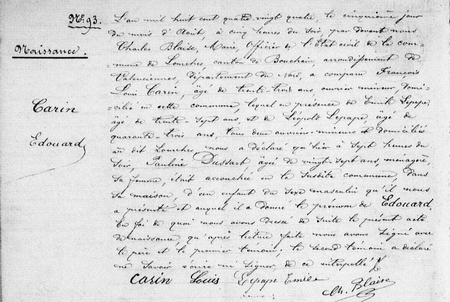 N° 93.
Naissance.
Carin
Edouard
L'an mil huit cent quatre vingt quatre, le cinquième jour
du mois d'Août, à cinq heures du soir, par devant nous
Charles Blaise, Maire, Officier de l'Etat civil de la com-
mune de Lourches, canton de Bouchain, arrondissement de
Valenciennes, département du Nord, a comparu François
Louis Carin, âgé de trente trois ans, ouvrier mineur, domi-
cilié en cette commune, lequel en présence de Emile Lepape,
âgé de trente sept ans, et de Léopold Lepape, âgé de
quarante-trois ans, tous deux ouvriers mineurs et domiciliés
au dit Lourches, nous a déclaré qu'hier à sept heures du
soir, Pauline âgée de vingt-sept ans, ménagère,
sa femme, était accouchée en la susdite commune, dans
sa maison, d'un enfant du sexe masculin qu'il nous
a présenté et auquel il a donné le prénom de Edouard,
En foi de quoi nous avons dressé de suite le présent acte
de naissance, qu'après lecture faite nous avons signé avec
le père et le premier témoin, le second témoin a déclaré
ne savoir signer, de ce interpellé.
Carin Louis Lepape Emile
Ch. Blaise